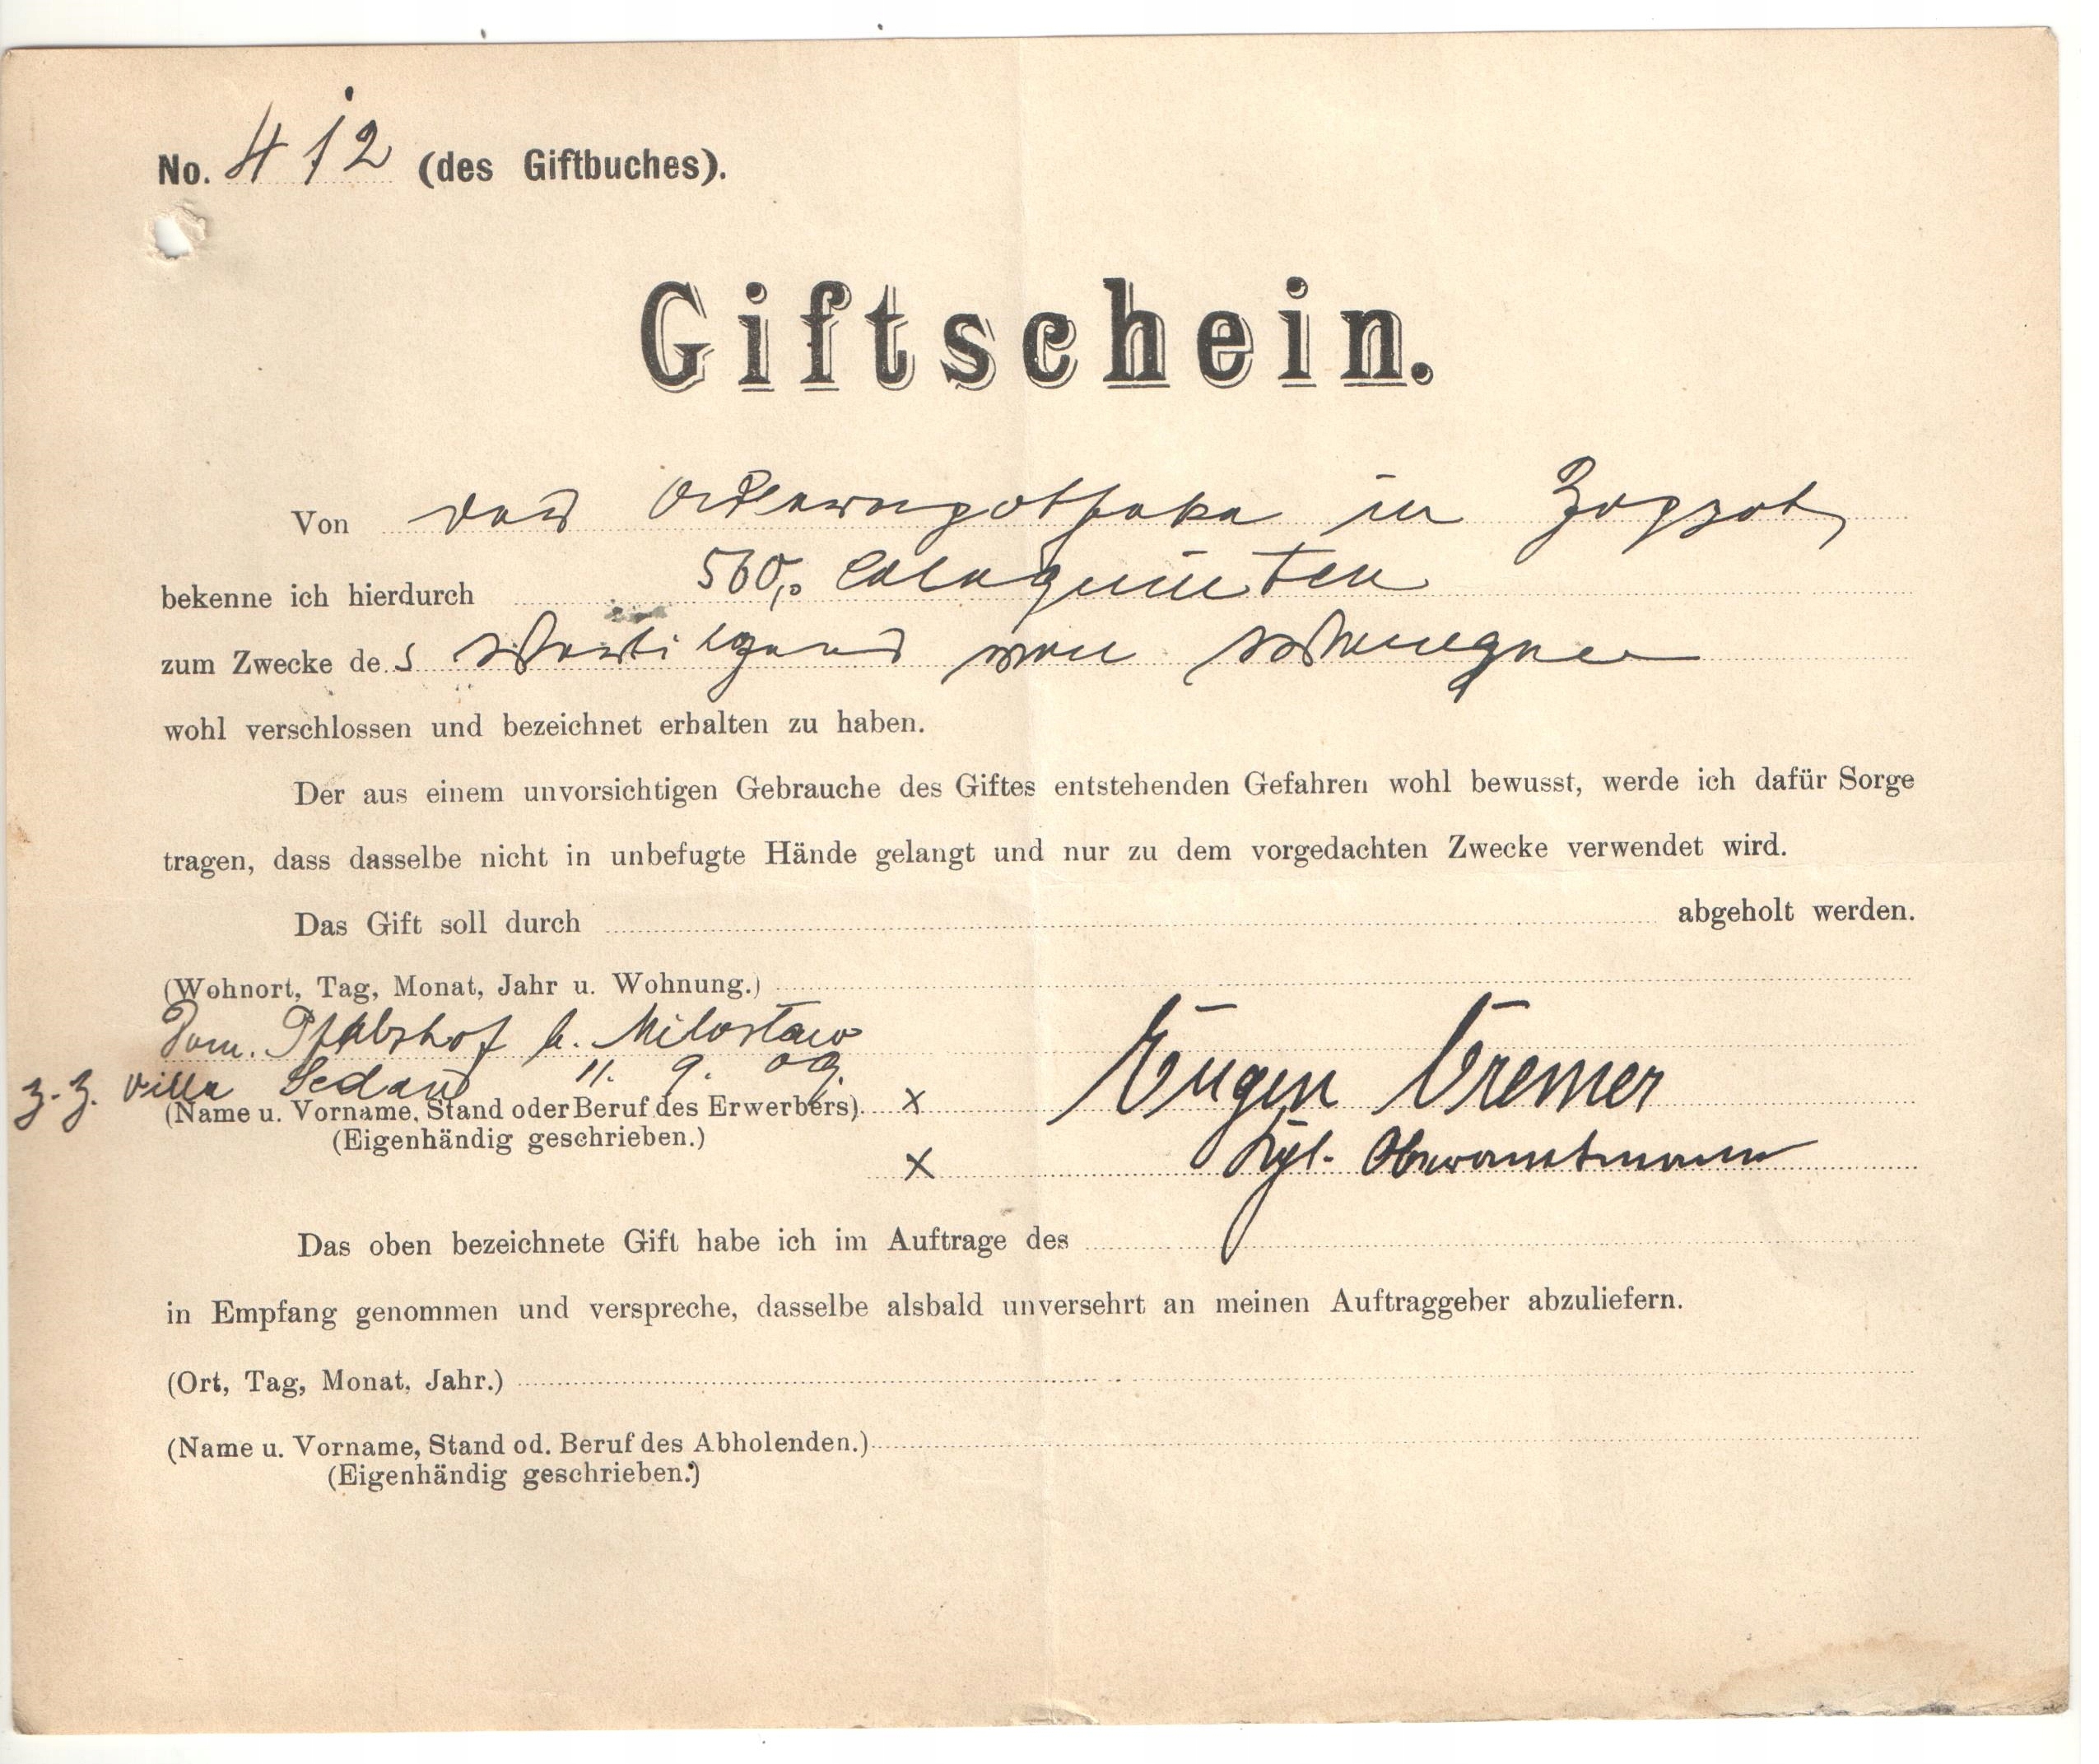 No. 412 (des Giftbuches).
Giftschein.
Von der Adlerapotheke in Zoppot
bekenne ich hierdurch 500,0 Coloquinten
zum Zwecke des von
wohl verschlossen und bezeichnet erhalten zu haben.
Der aus einem unvorsichtigen Gebrauche des Giftes entstehenden Gefahren wohl bewusst, werde ich dafür Sorge
tragen, dass dasselbe nicht in unbefugte Hände gelangt und nur zu dem vorgedachten Zwecke verwendet wird.
Das Gift soll durch abgeholt werden.
(Wohnort, Tag, Monat, Jahr u. Wohnung.)
Dom. b. Miloslaw
z. Z. Villa Sedan 11. 9. 09.
(Name u. Vorname, Stand oder Beruf des Erwerbers) x Eugen Cremer
(Eigenhändig geschrieben.)
x Kgl. Oberamtmann
Das oben bezeichnete Gift habe ich im Auftrage des
in Empfang genommen und verspreche, dasselbe alsbald unversehrt an meinen Auftraggeber abzuliefern.
(Ort, Tag, Monat, Jahr.)
(Name u. Vorname, Stand od. Beruf des Abholenden.)
(Eigenhändig geschrieben.)